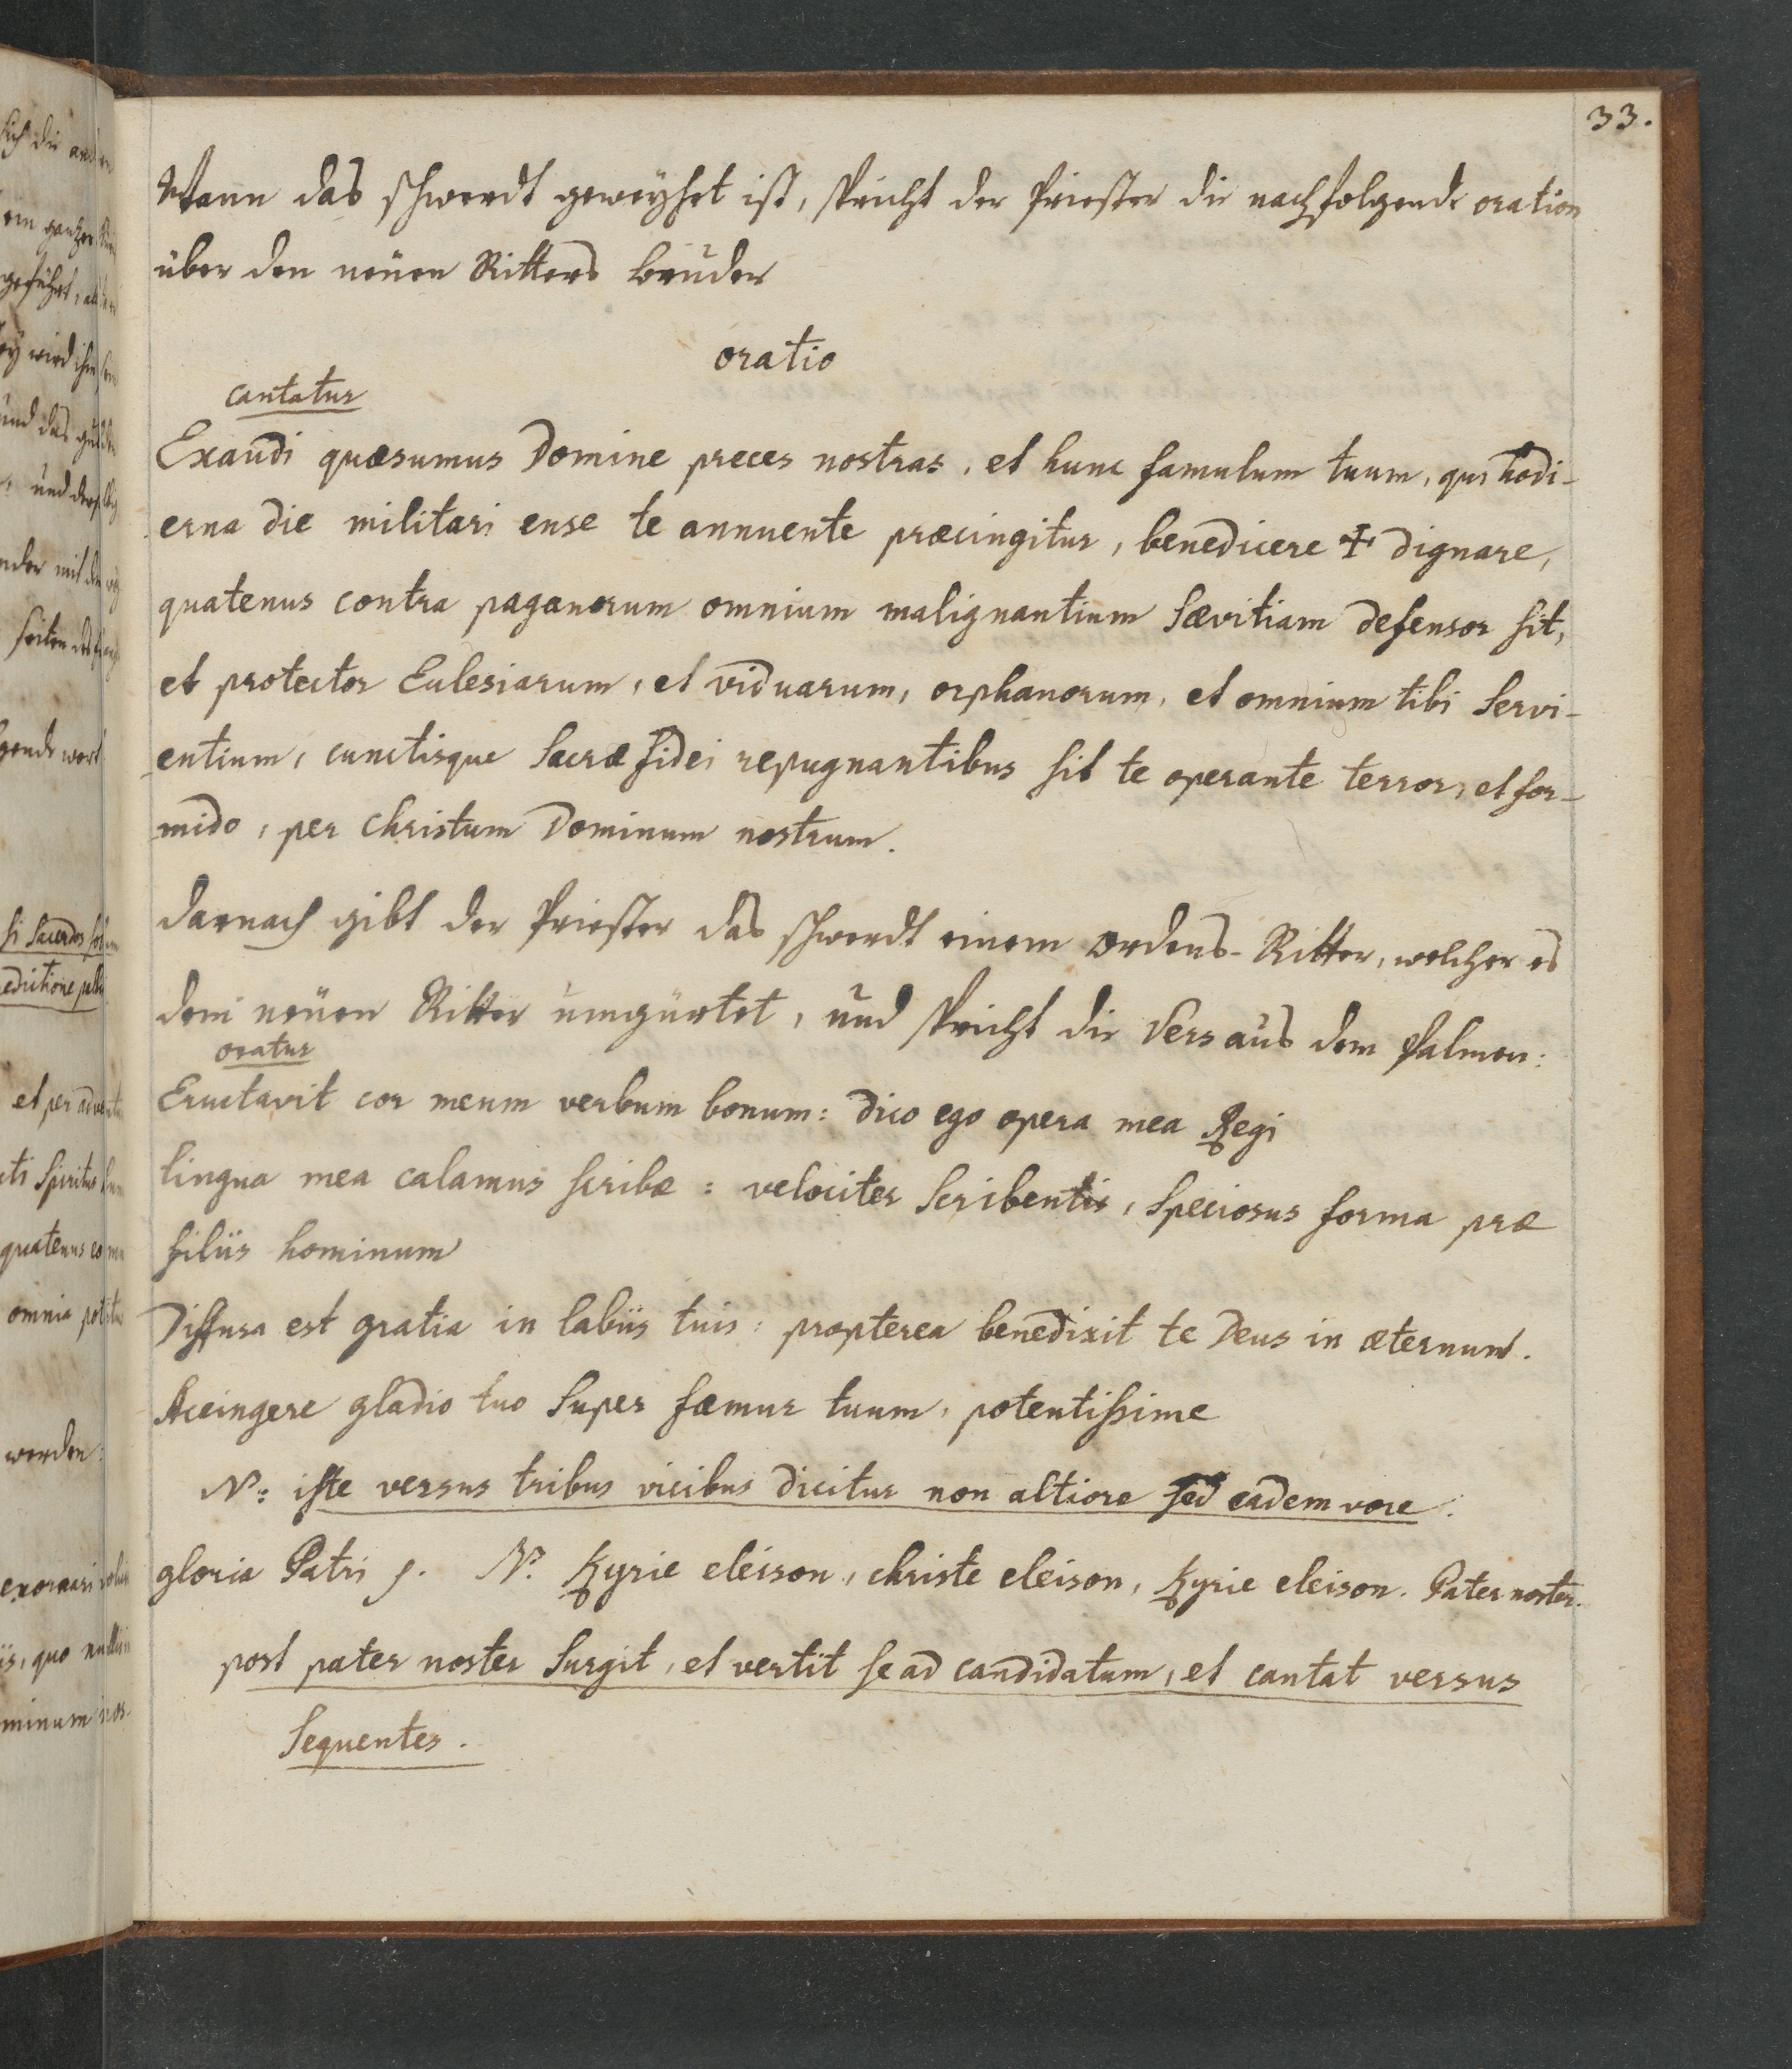 33.
Wann das schwerdt geweyhet ist, spricht der Priester die nachfolgende oration
über den neüen Ritters bruder
oratio
cantatur
Exaudi quæsumus Domine preces nostras, et hunc famulum tuum, qui hodi-
erna die militari ense te annuente præcingitur, benedicere ✠ dignare,
quatenus contra paganorum omnium malignantium Sævitiam defensor sit,
et protector Eclesiarum, et viduarum, orphanorum, et omnium tibi Servi-
entium, cunctisque Sacræ fidei repugnantibus sit te operante terror, et for-
mido, per Christum Dominum nostrum.
darnach gibt der Priester das schwerdt einem ordens-Ritter, welcher es
dem neüen Ritter umgürtet, und spricht die Vers aus dem Psalmen:
oratur
Eructavit cor meum verbum bonum: dico ego opera mea Regi
lingua mea calamus scribæ: velociter Scribentis, Speciosus forma præ
filiis hominum
Diffusa est gratia in labiis tuis: propterea benedixit te Deus in æternum.
Accingere gladio tuo Super fæmur tuum, potentissime
N: iste versus tribus vicibus dicitur non altiore sed eadem voce.
gloria Patri p. N. Kyrie eleison, christe eleison, Kyrie eleison. Pater noster.
post pater noster Surgit, et vertit se ad candidatum, et cantat versus
Sequentes.